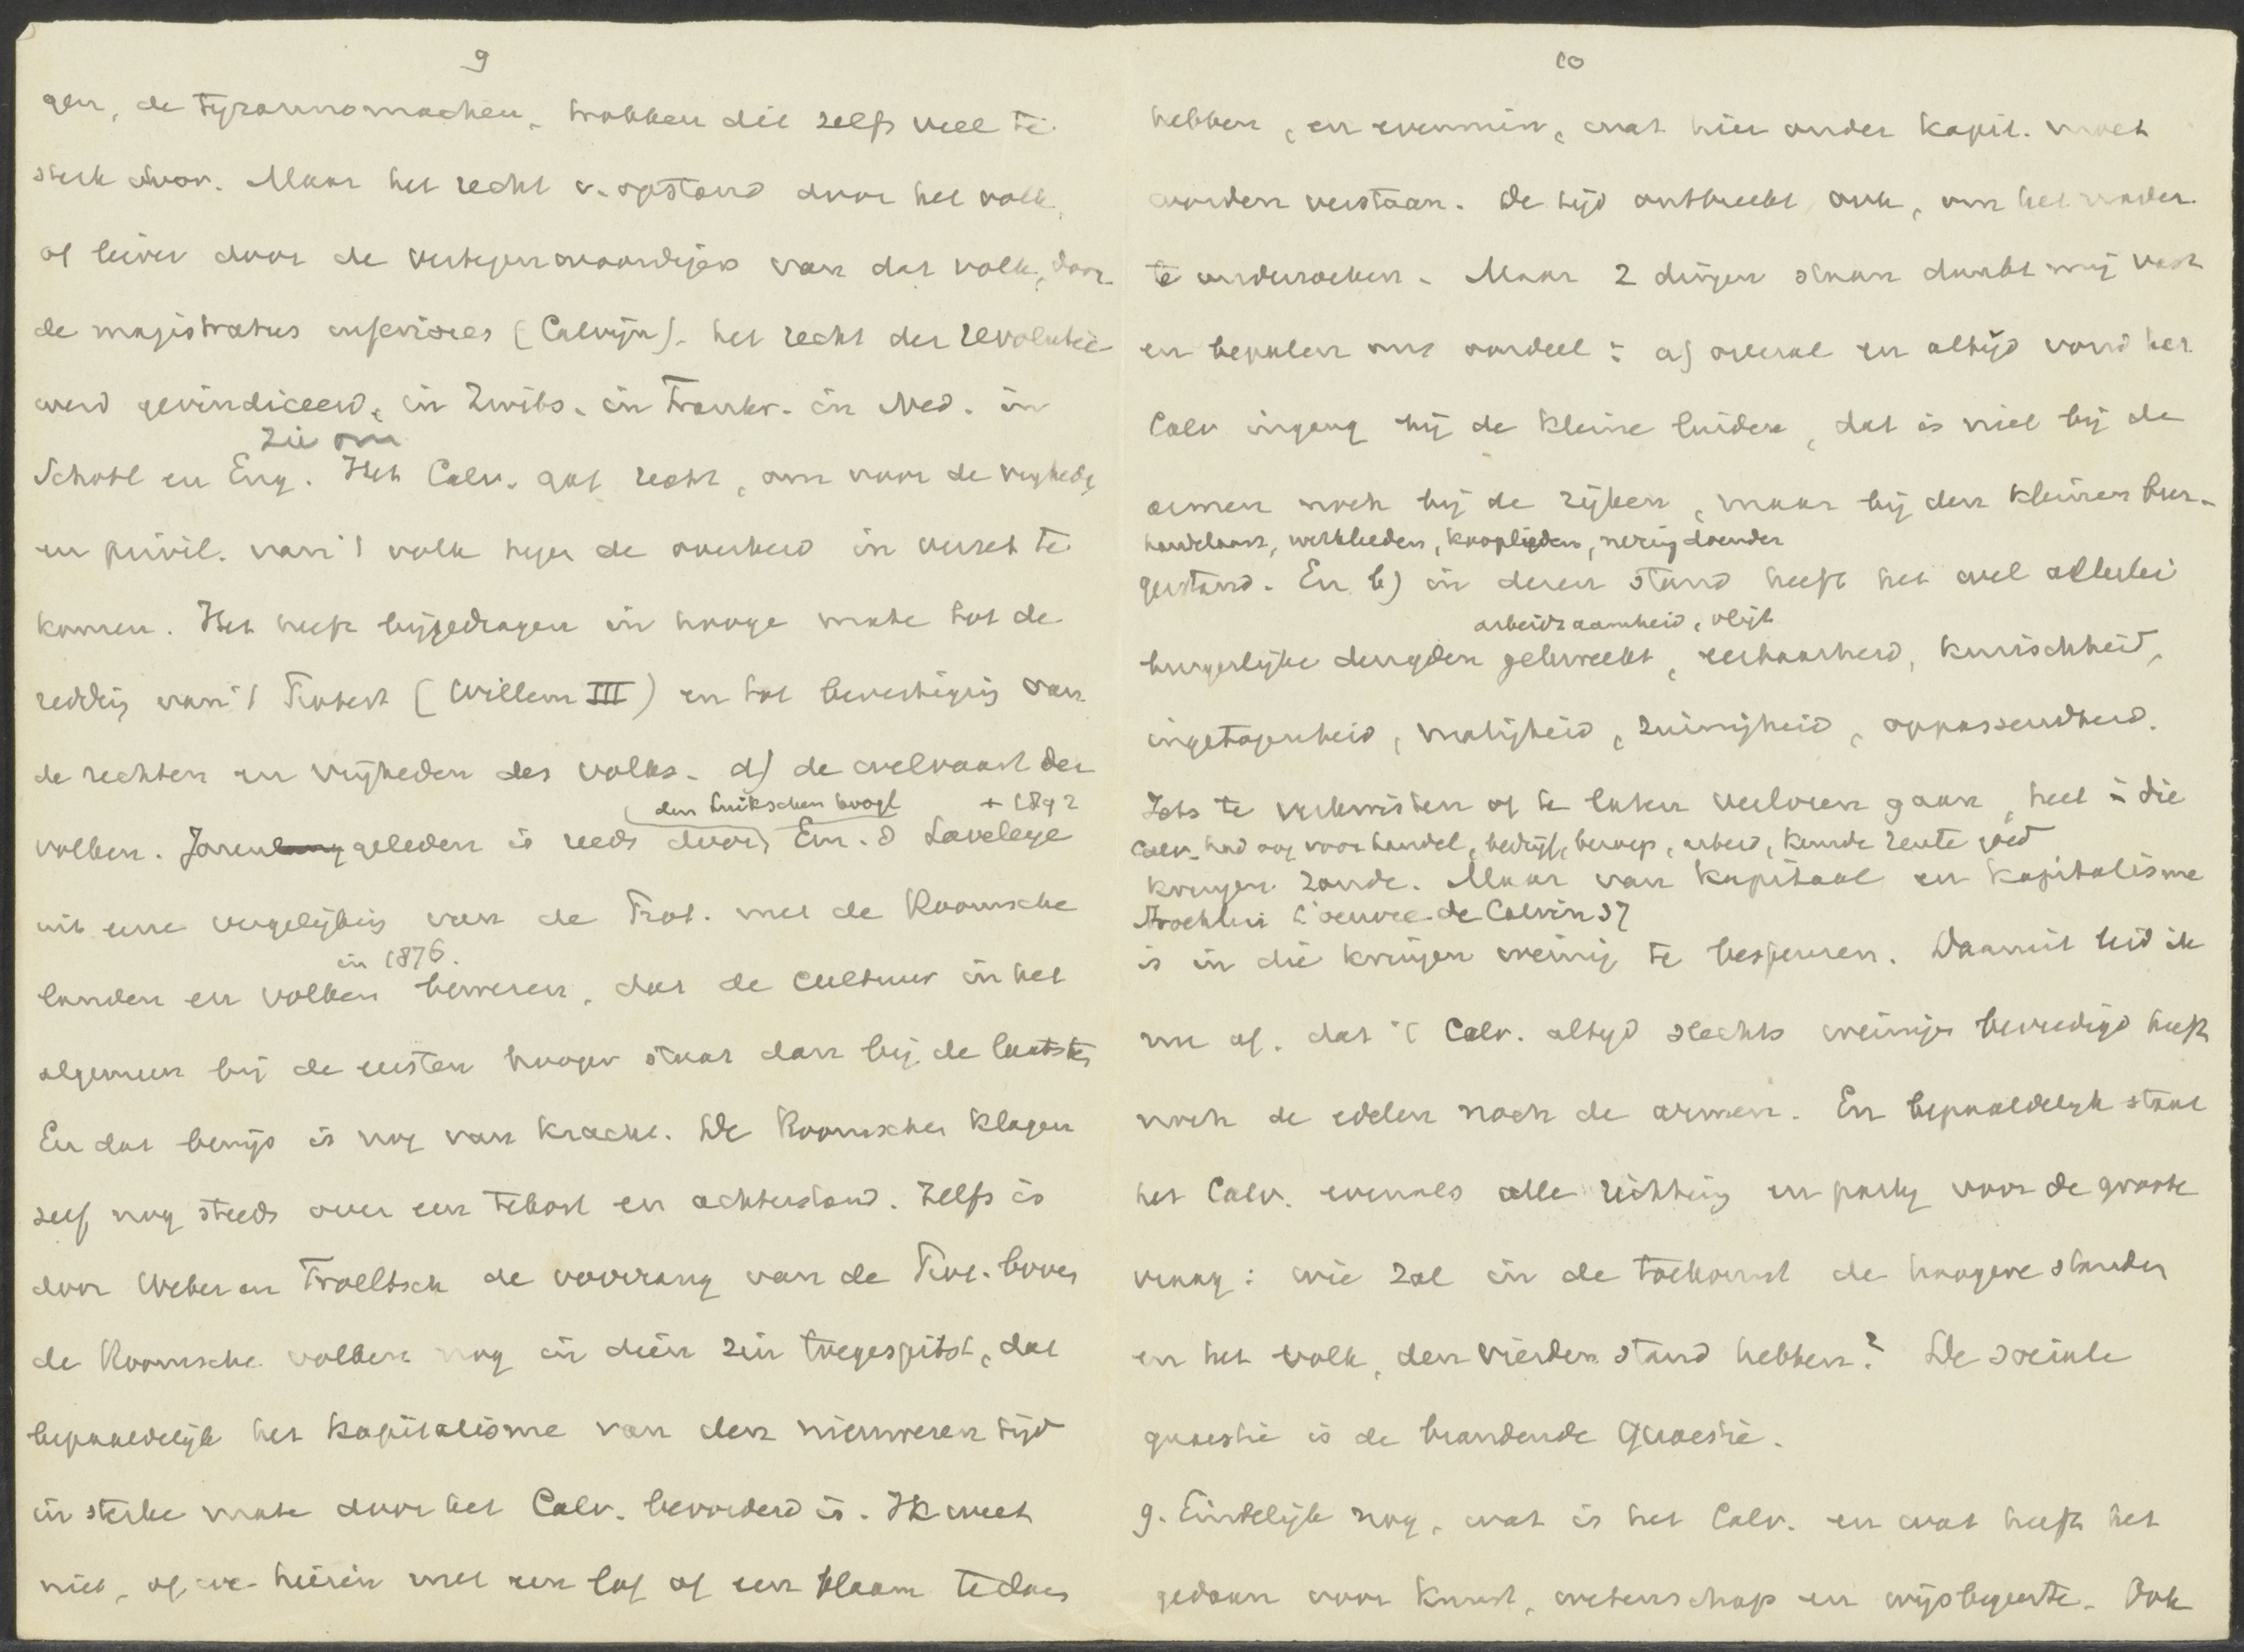 9
gen, de tyrannomachen, trokken dit zelfs veel te
sterk door. Maar het recht v. opstand door het volk,
of liever door de vertegenwoordigers van dat volk, door
de magistratus inferiores (Calvijn), het recht der revolutie
werd gevindiceerd, in Zwits. in Frankr. in Ned. in
zie om
Schotl en Eng. Het Calv. gaf recht, om voor de vrijhedn
en privil. van 't volk tegen de overheid in verzet te
komen. Het heeft bijgedragen in hooge mate tot de
redding van 't Protest (Willem III) en tot bevestiging van
de rechten en vrijheden des volks. d) de welvaart der
den Luikschen hoogl + 1892
volken. Jaren geleden is reeds door Em. d Laveleye
uit eene vergelijking van de Prot. met de Roomsche
in 1876.
landen en volken bewezen, dat de cultuur in het
algemeen bij de eersten hooger staat dan bij de laatsten
En dat bewijs is nog van kracht. De Roomschen klagen
zelf nog steeds over een tekort en achterstand. Zelfs is
door Weber en Troeltsch de voorrang van de Prot. boven
de Roomsche volken nog in dien zin toegespitst, dat
bepaaldelijk het kapitalisme van den nieuweren tijd
in sterke mate door het Calv. bevorderd is. Ik weet
niet, of we hierin met een lof of een blaam te doen
10
hebben, en evenmin, wat hier onder kapit. moet
worden verstaan. De tijd ontbreekt ook, om het nader
te onderzoeken. Maar 2 dingen staan dunkt mij vast
en bepalen ons oordeel: a) overal en altijd vond het
Calv ingang bij de kleine luiden, dat is niet bij de
armen noch bij de rijken, maar bij den kleinen bur-
handelaars, werklieden, kooplieden, neringdoenden
gerstand. En b) in dezen stand heeft het wel allerlei
arbeidzaamheid, vlijt
burgerlijke deugden gekweekt, eerbaarheid, kuischheid,
ingetogenheid, matigheid, zuinigheid, oppassendheid.
Iets te verkwisten of te laten verloren gaan, heet in die
Calv. had oog voor handel, bedrijf, beroep, arbeid, keurde rente goed
kringen zonde. Maar van kapitaal en kapitalisme
L'oeuvre de Calvin 37
is in die kringen weinig te bespeuren. Daaruit leid ik
me af, dat 't Calv. altijd slechts weinigen bevredigd heeft
noch de edelen noch de armen. En bepaaldelijk staat
het Calv. evenals alle richting en partij voor de groote
vraag: wie zal in de toekomst de hoogere standen
en het volk, den vierden stand hebben? De sociale
quaestie is de brandende quaestie.
9. Eindelijk nog, wat is het Calv. en wat heeft het
gedaan voor kunst, wetenschap en wijsbegeerte. Ook